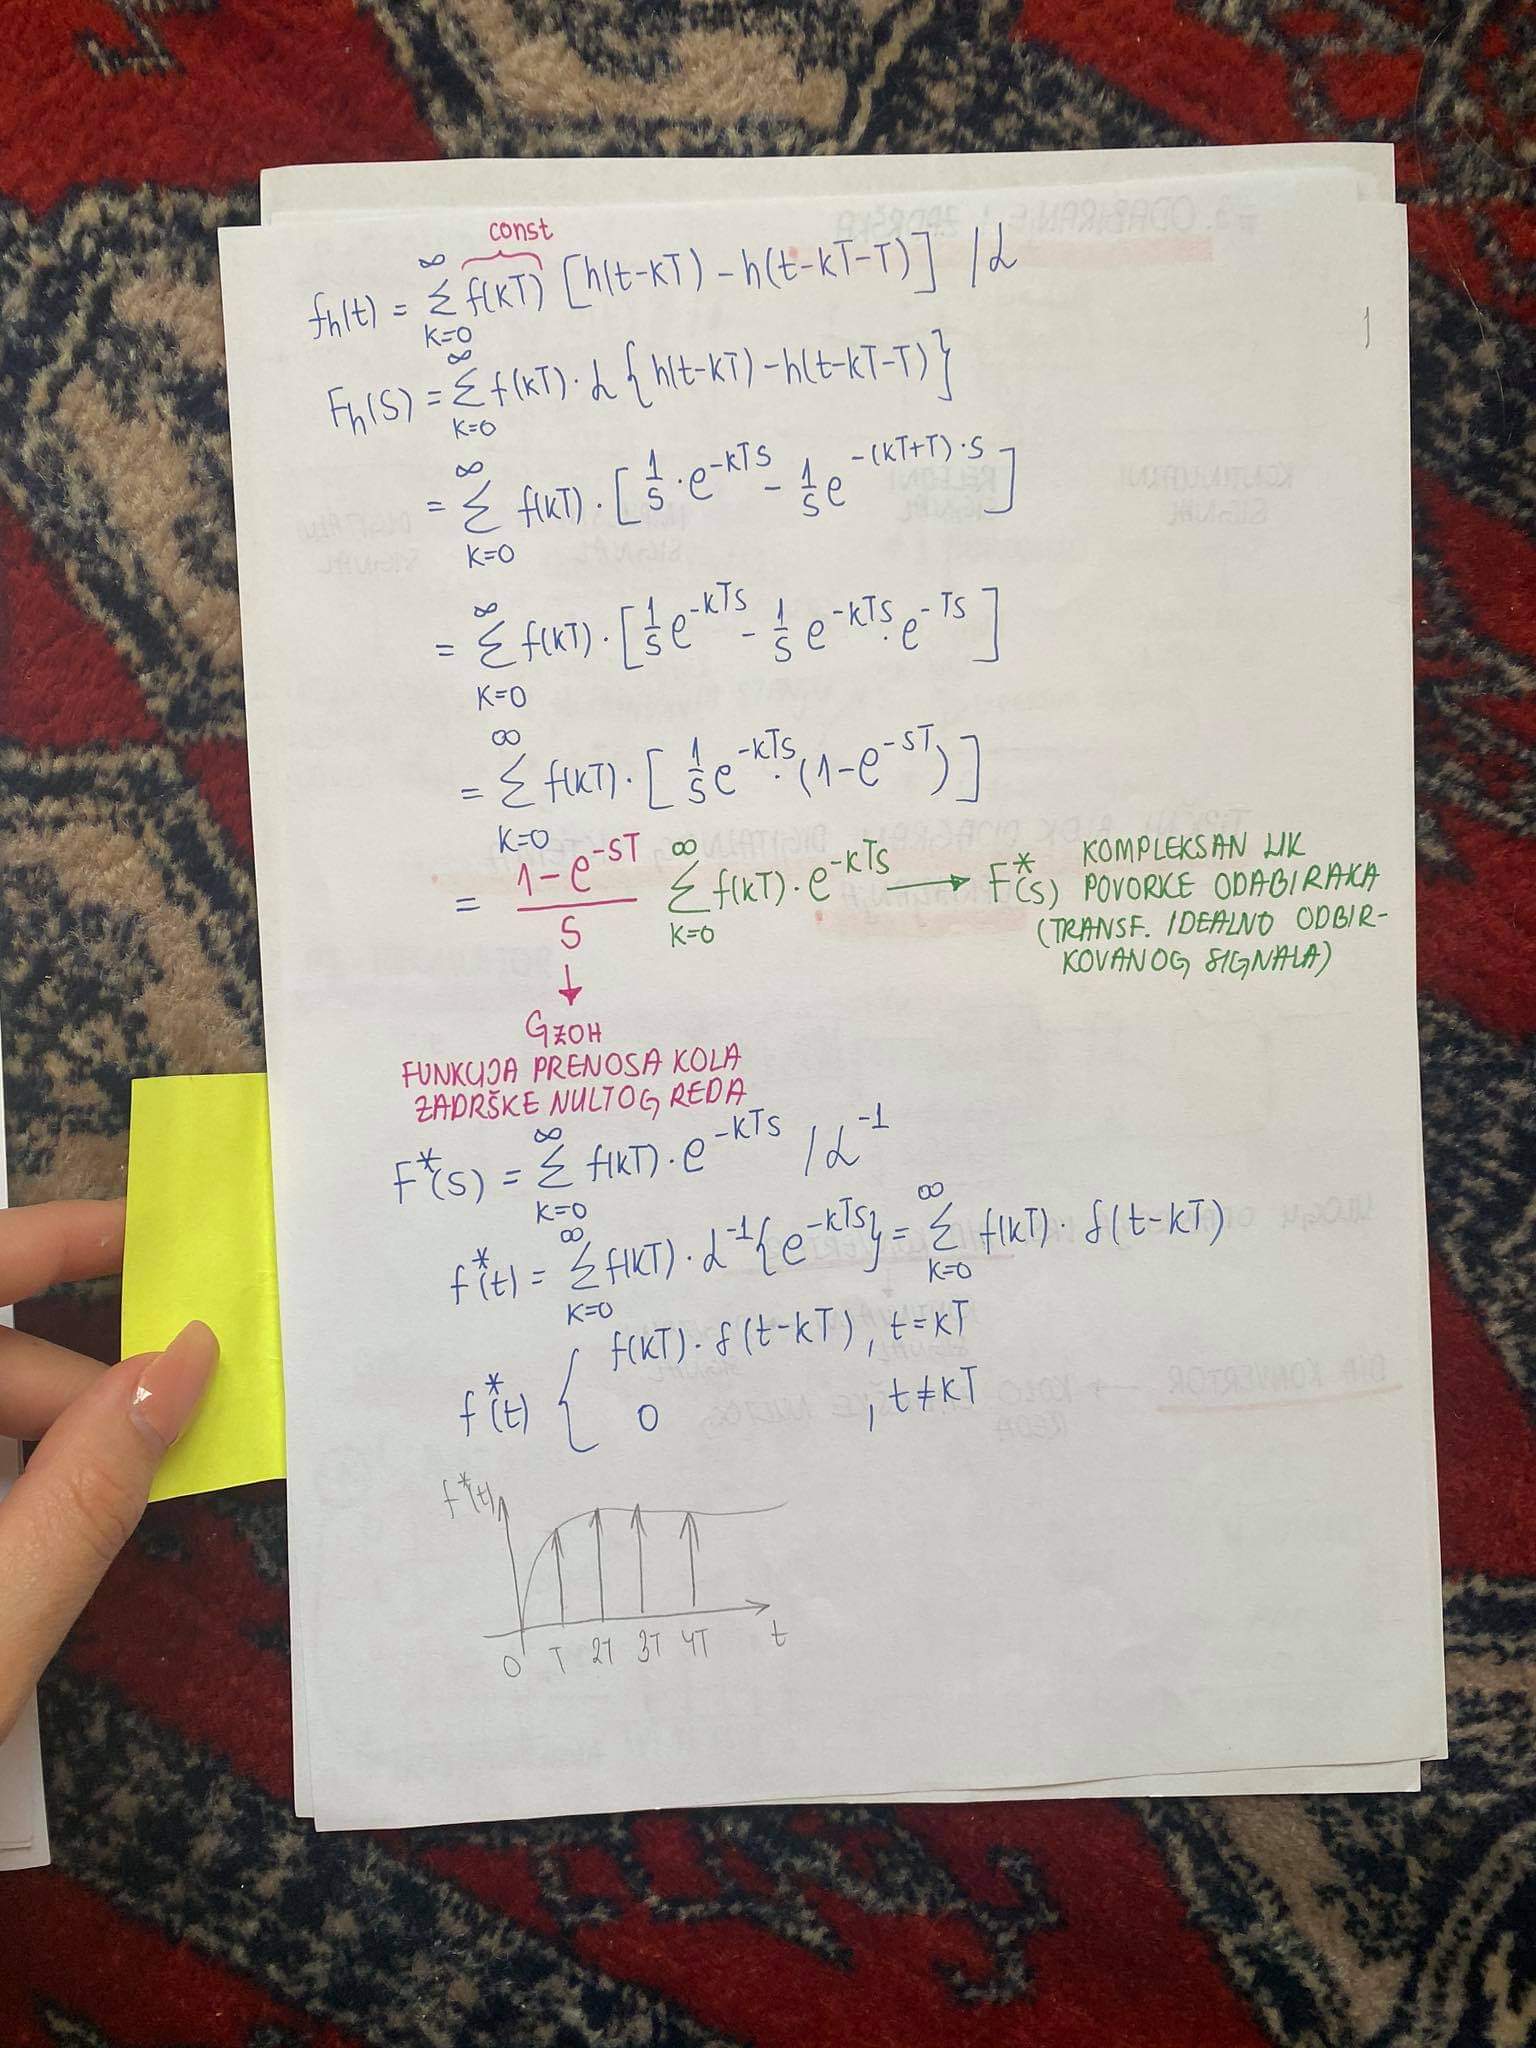 const
fh(t) = ∞Σk=0 f(kT) [h(t-kT) - h(t-kT-T)] /ℒ
Fh(S) = ∞Σk=0 f(kT) · ℒ{h(t-kT) - h(t-kT-T)}
= ∞Σk=0 f(kT) · [1/S · e^-kTS - 1/S e^-(kT+T)·S]
= ∞Σk=0 f(kT) · [1/S e^-kTS - 1/S e^-kTS · e^-TS]
= ∞Σk=0 f(kT) · [1/S e^-kTS · (1-e^-ST)]
= 1-e^-ST/S ∞Σk=0 f(kT) · e^-kTS → F*(S) KOMPLEKSAN LIK
POVORKE ODABIRAKA
(TRANSF. IDEALNO ODBIR-
KOVANOG SIGNALA)
↓
GZOH
FUNKCIJA PRENOSA KOLA
ZADRŠKE NULTOG REDA
F*(S) = ∞Σk=0 f(kT) · e^-kTS /ℒ^-1
f*(t) = ∞Σk=0 f(kT) · ℒ^-1{e^-kTS} = ∞Σk=0 f(kT) · δ(t-kT)
f*(t) { f(kT) · δ(t-kT), t=kT
0 , t≠kT
f*(t)
0 T 2T 3T 4T t